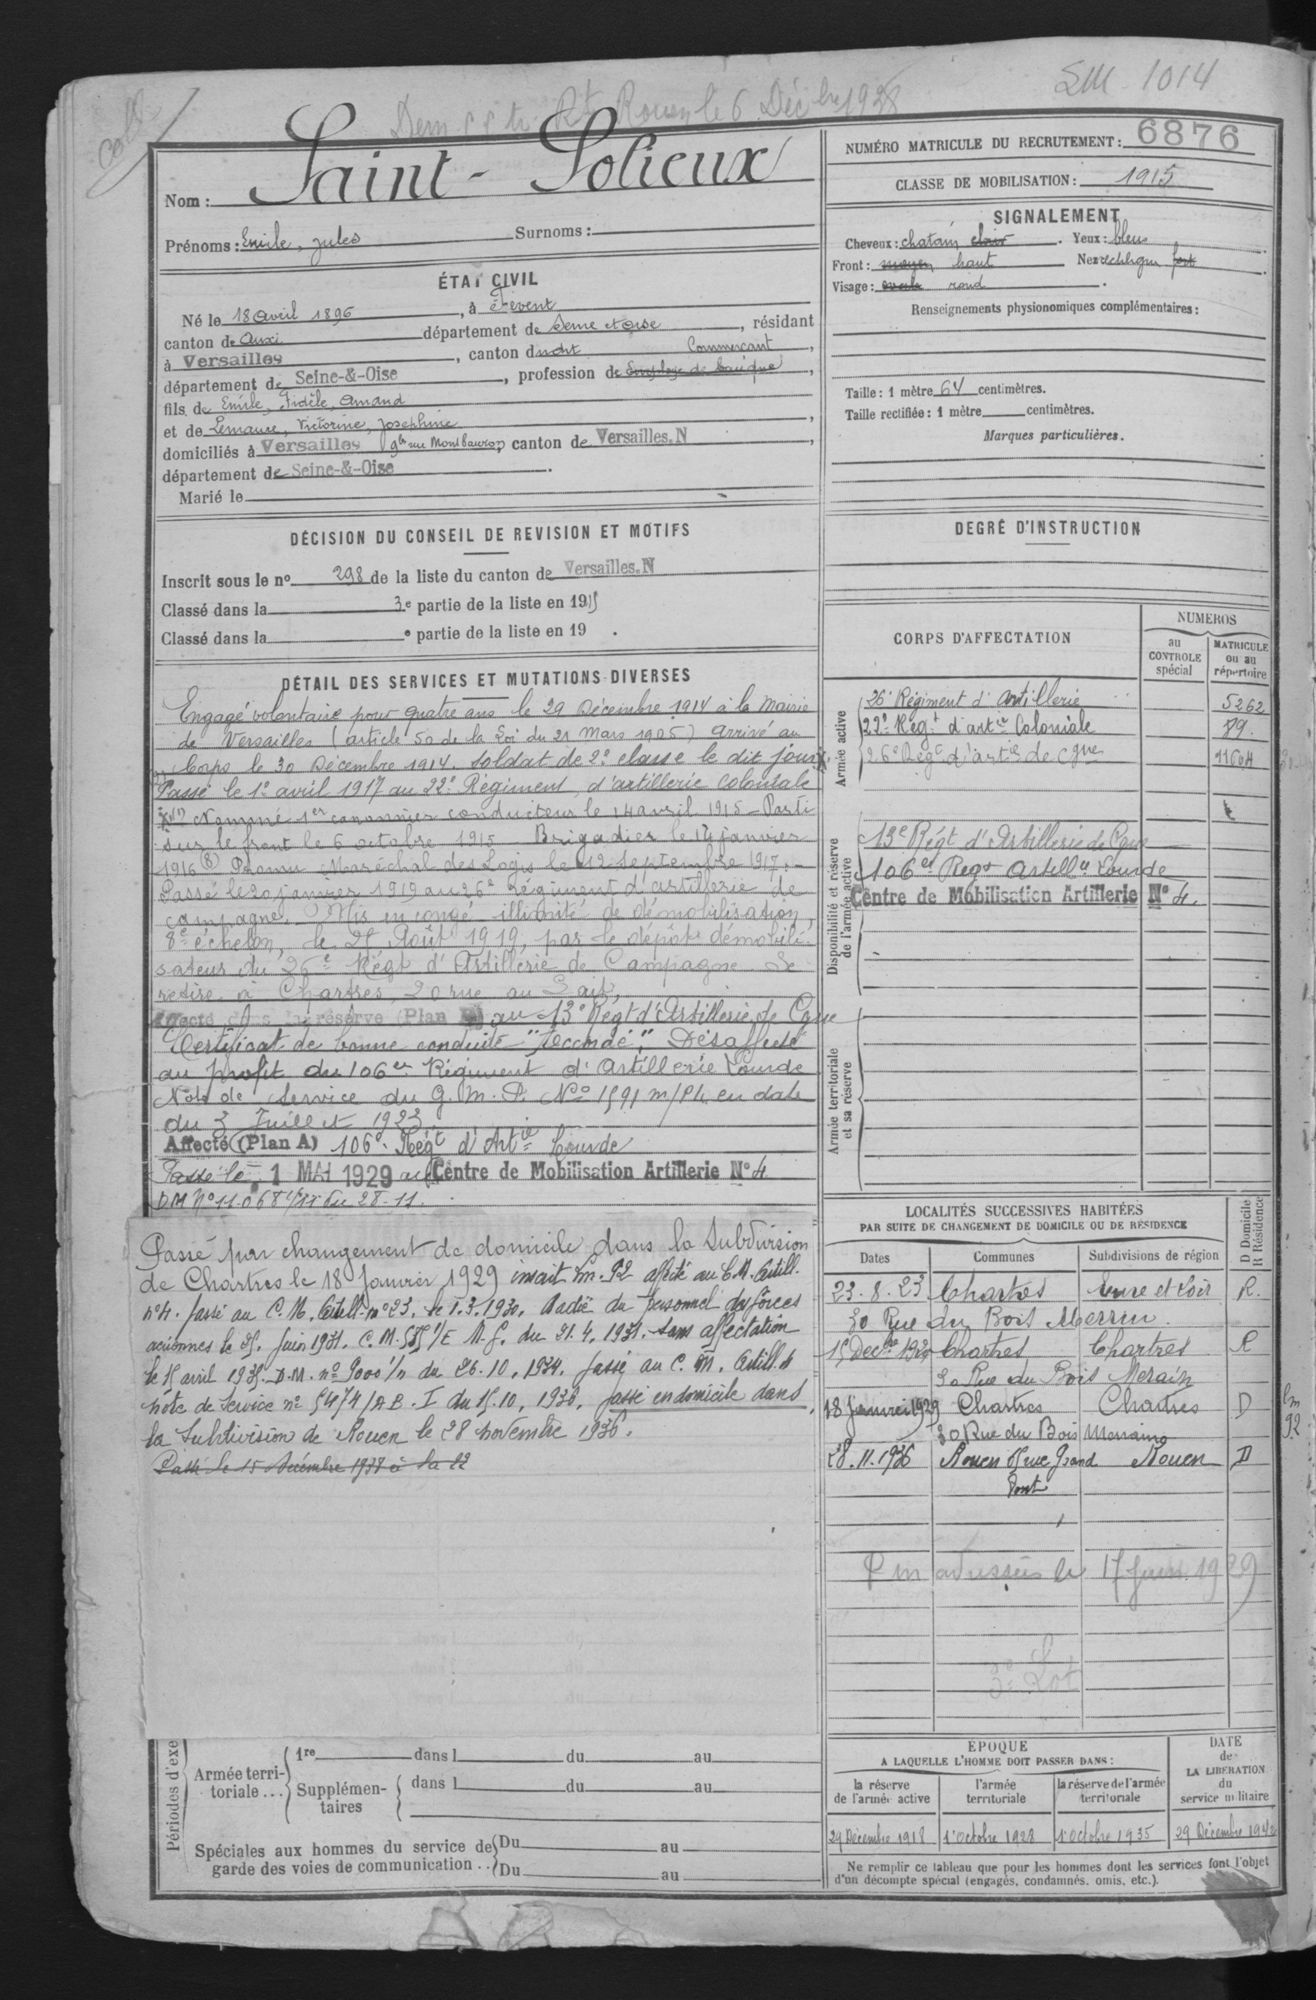 LM - 1014
Rouen le 6 Déc bre 1938
Nom : Saint-Solieux
Prénoms : Emile, Jules Surnoms :
ÉTAT CIVIL
Né le 18 Avril 1896, à Frévent
canton de Auxi département de Seine et Oise, résidant
à Versailles, canton dudit Commerçant,
département de Seine-&-Oise, profession de Employé de banque,
fils de Emile, Fidèle, Amand
et de Lemaure, Victorine, Joséphine,
domiciliés à Versailles 9 bis rue Montbauron, canton de Versailles.N,
département de Seine-&-Oise.
Marié le
DÉCISION DU CONSEIL DE REVISION ET MOTIFS
Inscrit sous le no 298 de la liste du canton de Versailles.N
Classé dans la 3e partie de la liste en 1915
Classé dans la e partie de la liste en 19 .
DÉTAIL DES SERVICES ET MUTATIONS DIVERSES
Engagé volontaire pour quatre ans le 29 Décembre 1914 à la Mairie
de Versailles (article 50 de la Loi du 21 Mars 1905) Arrivé au
Corps le 30 Décembre 1914. Soldat de 2e classe le dit jour
Passé le 1er avril 1917 au 22e Régiment d'artillerie coloniale
Nommé 1er canonnier conducteur le 14 avril 1915 - Parti
sur le front le 6 octobre 1915 Brigadier le 14 janvier
1916 Promu Maréchal des Logis le 12 Septembre 1917. -
Passé le 20 janvier 1919 au 26e Régiment d'artillerie de
campagne. Mis en congé illimité de démobilisation,
8e échelon, le 25 Août 1919, par le dépôt démobili-
sateur du 26e Régt d'Artillerie de Campagne Se
retire à Chartres, 20 rue au Lait,
Affecté dans la réserve (Plan ) au 13e Régt d'Artillerie de Cgne
Certificat de bonne conduite "Accordé", Désaffecté
au profit du 106e Régiment d'Artillerie Lourde
Note de Service du G.M.P. No 1591 m/Ph en date
du 3 Juillet 1923
Affecté (Plan A) 106e Régt d'Artie Lourde
Passé le 1 MAI 1929 au Centre de Mobilisation Artillerie No 4
DM No 11.068 du 28-11.
Passé par changement de domicile dans la Subdivision
de Chartres le 18 Janvier 1929 inscrit Lm. 92 affecté au C.M. Artill.
no 4. Passé au C.M. Artill. no 23. le 1.3.1930. Radié du personnel des forces
aériennes le 25 Juin 1931. C.M. 535 1/E M.G. du 21.4.1931. Sans affectation
le 15 avril 1935. D.M. no 9000 1/n du 26.10.1934. Passé au C.M. Artill. 4
note de Service no 5474/AB.I du 15.10.1936. Passé en domicile dans
la Subdivision de Rouen le 28 novembre 1936.
Passé le 15 décembre 1938 à la 22
Périodes d'exe
Armée terri-
toriale ...
1re dans l du au
Supplémen-
taires
dans l du au
Spéciales aux hommes du service de
garde des voies de communication ..
Du au
Du au
NUMÉRO MATRICULE DU RECRUTEMENT : 6876
CLASSE DE MOBILISATION : 1915
SIGNALEMENT
Cheveux : chatain clair . Yeux : bleus
Front : moyen haut Nez rectiligne fort
Visage : ovale rond .
Renseignements physionomiques complémentaires :
Taille : 1 mètre 64 centimètres.
Taille rectifiée : 1 mètre centimètres.
Marques particulières.
DEGRÉ D'INSTRUCTION
CORPS D'AFFECTATION
NUMEROS
au CONTROLE spécial
MATRICULE ou au répertoire
Armée active
26e Régiment d'Artillerie 5262
22e Régt d'artie Coloniale 89.
26e Régt d'artie de cgne 11664
Disponibilité et réserve de l'armée active
13e Régt d'Artillerie de Cgne
106e Regt Artellie Lourde
Centre de Mobilisation Artillerie No 4.
Armée territoriale et sa réserve
LOCALITÉS SUCCESSIVES HABITÉES
PAR SUITE DE CHANGEMENT DE DOMICILE OU DE RÉSIDENCE
Dates Communes Subdivisions de région D Domicile R Résidence
23.8.23 Chartres Eure et Loir R.
30 Rue du Bois Merrin.
15 Decbre 1928 Chartres Chartres R
30 Rue du Bois Merain
18 Janvier 1929 Chartres Chartres D
30 Rue du Bois Merrain
Lm 92
28.11.1936 Rouen rue Grand Rouen D
Pont
adressées le 17 Juin 1929
3e Lot
EPOQUE
A LAQUELLE L'HOMME DOIT PASSER DANS :
DATE de LA LIBERATION du service militaire
la réserve de l'armée active
l'armée territoriale
la réserve de l'armée territoriale
29 Décembre 1918
1er Octobre 1928
1er Octobre 1935
29 Décembre 1942
Ne remplir ce tableau que pour les hommes dont les services font l'objet
d'un décompte spécial (engagés, condamnés, omis, etc.).